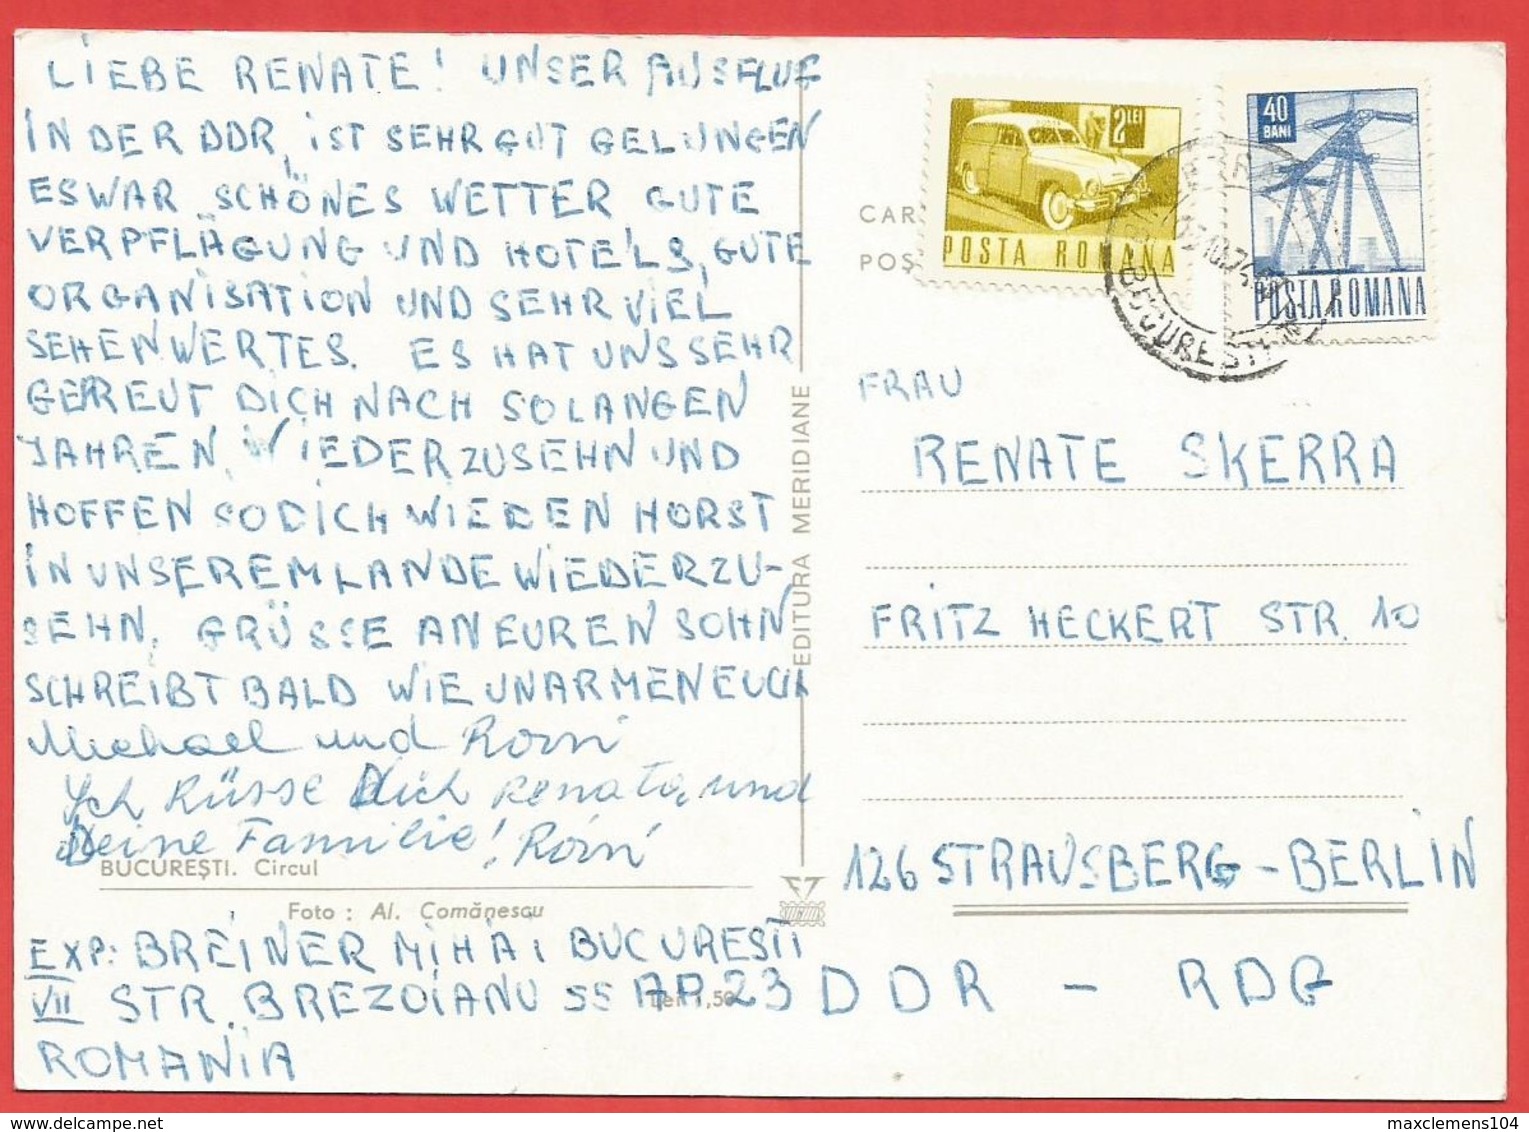 LIEBE RENATE! UNSER AUSFLUG
IN DER DDR, IST SEHR GUT GELUNGEN
ES WAR SCHÖNES WETTER GUTE
VERPFLÄGUNG UND HOTELS, GUTE
ORGANISATION UND SEHR VIEL
SEHENWERTES. ES HAT UNS SEHR
GEFREUT DICH NACH SO LANGEN
JAHREN, WIEDERZUSEHN UND
HOFFEN SO DICH WIEDEN HORST
IN UNSEREM LANDE WIEDERZU-
SEHN. GRÜSSE AN EUREN SOHN
SCHREIBT BALD WIE UNARMEN EUCH
Michael und Roini
Ich Küsse Dich Renate, und
Deine Familie! Roini
BUCUREȘTI. Circul
Foto: Al. Comănescu
EXP: BREINER MIHAI BUCURESTI
VII STR. BREZOIANU 55 AP. 23
ROMANIA
Lei 1,50
EDITURA MERIDIANE
CAR
POȘ
2 LEI
POSTA ROMANA
40
BANI
POSTA ROMANA
BUCURESTI
FRAU
RENATE SKERRA
FRITZ HECKERT STR. 10
126 STRAUSBERG - BERLIN
DDR - RDG
www.delcampe.net
maxclemens104